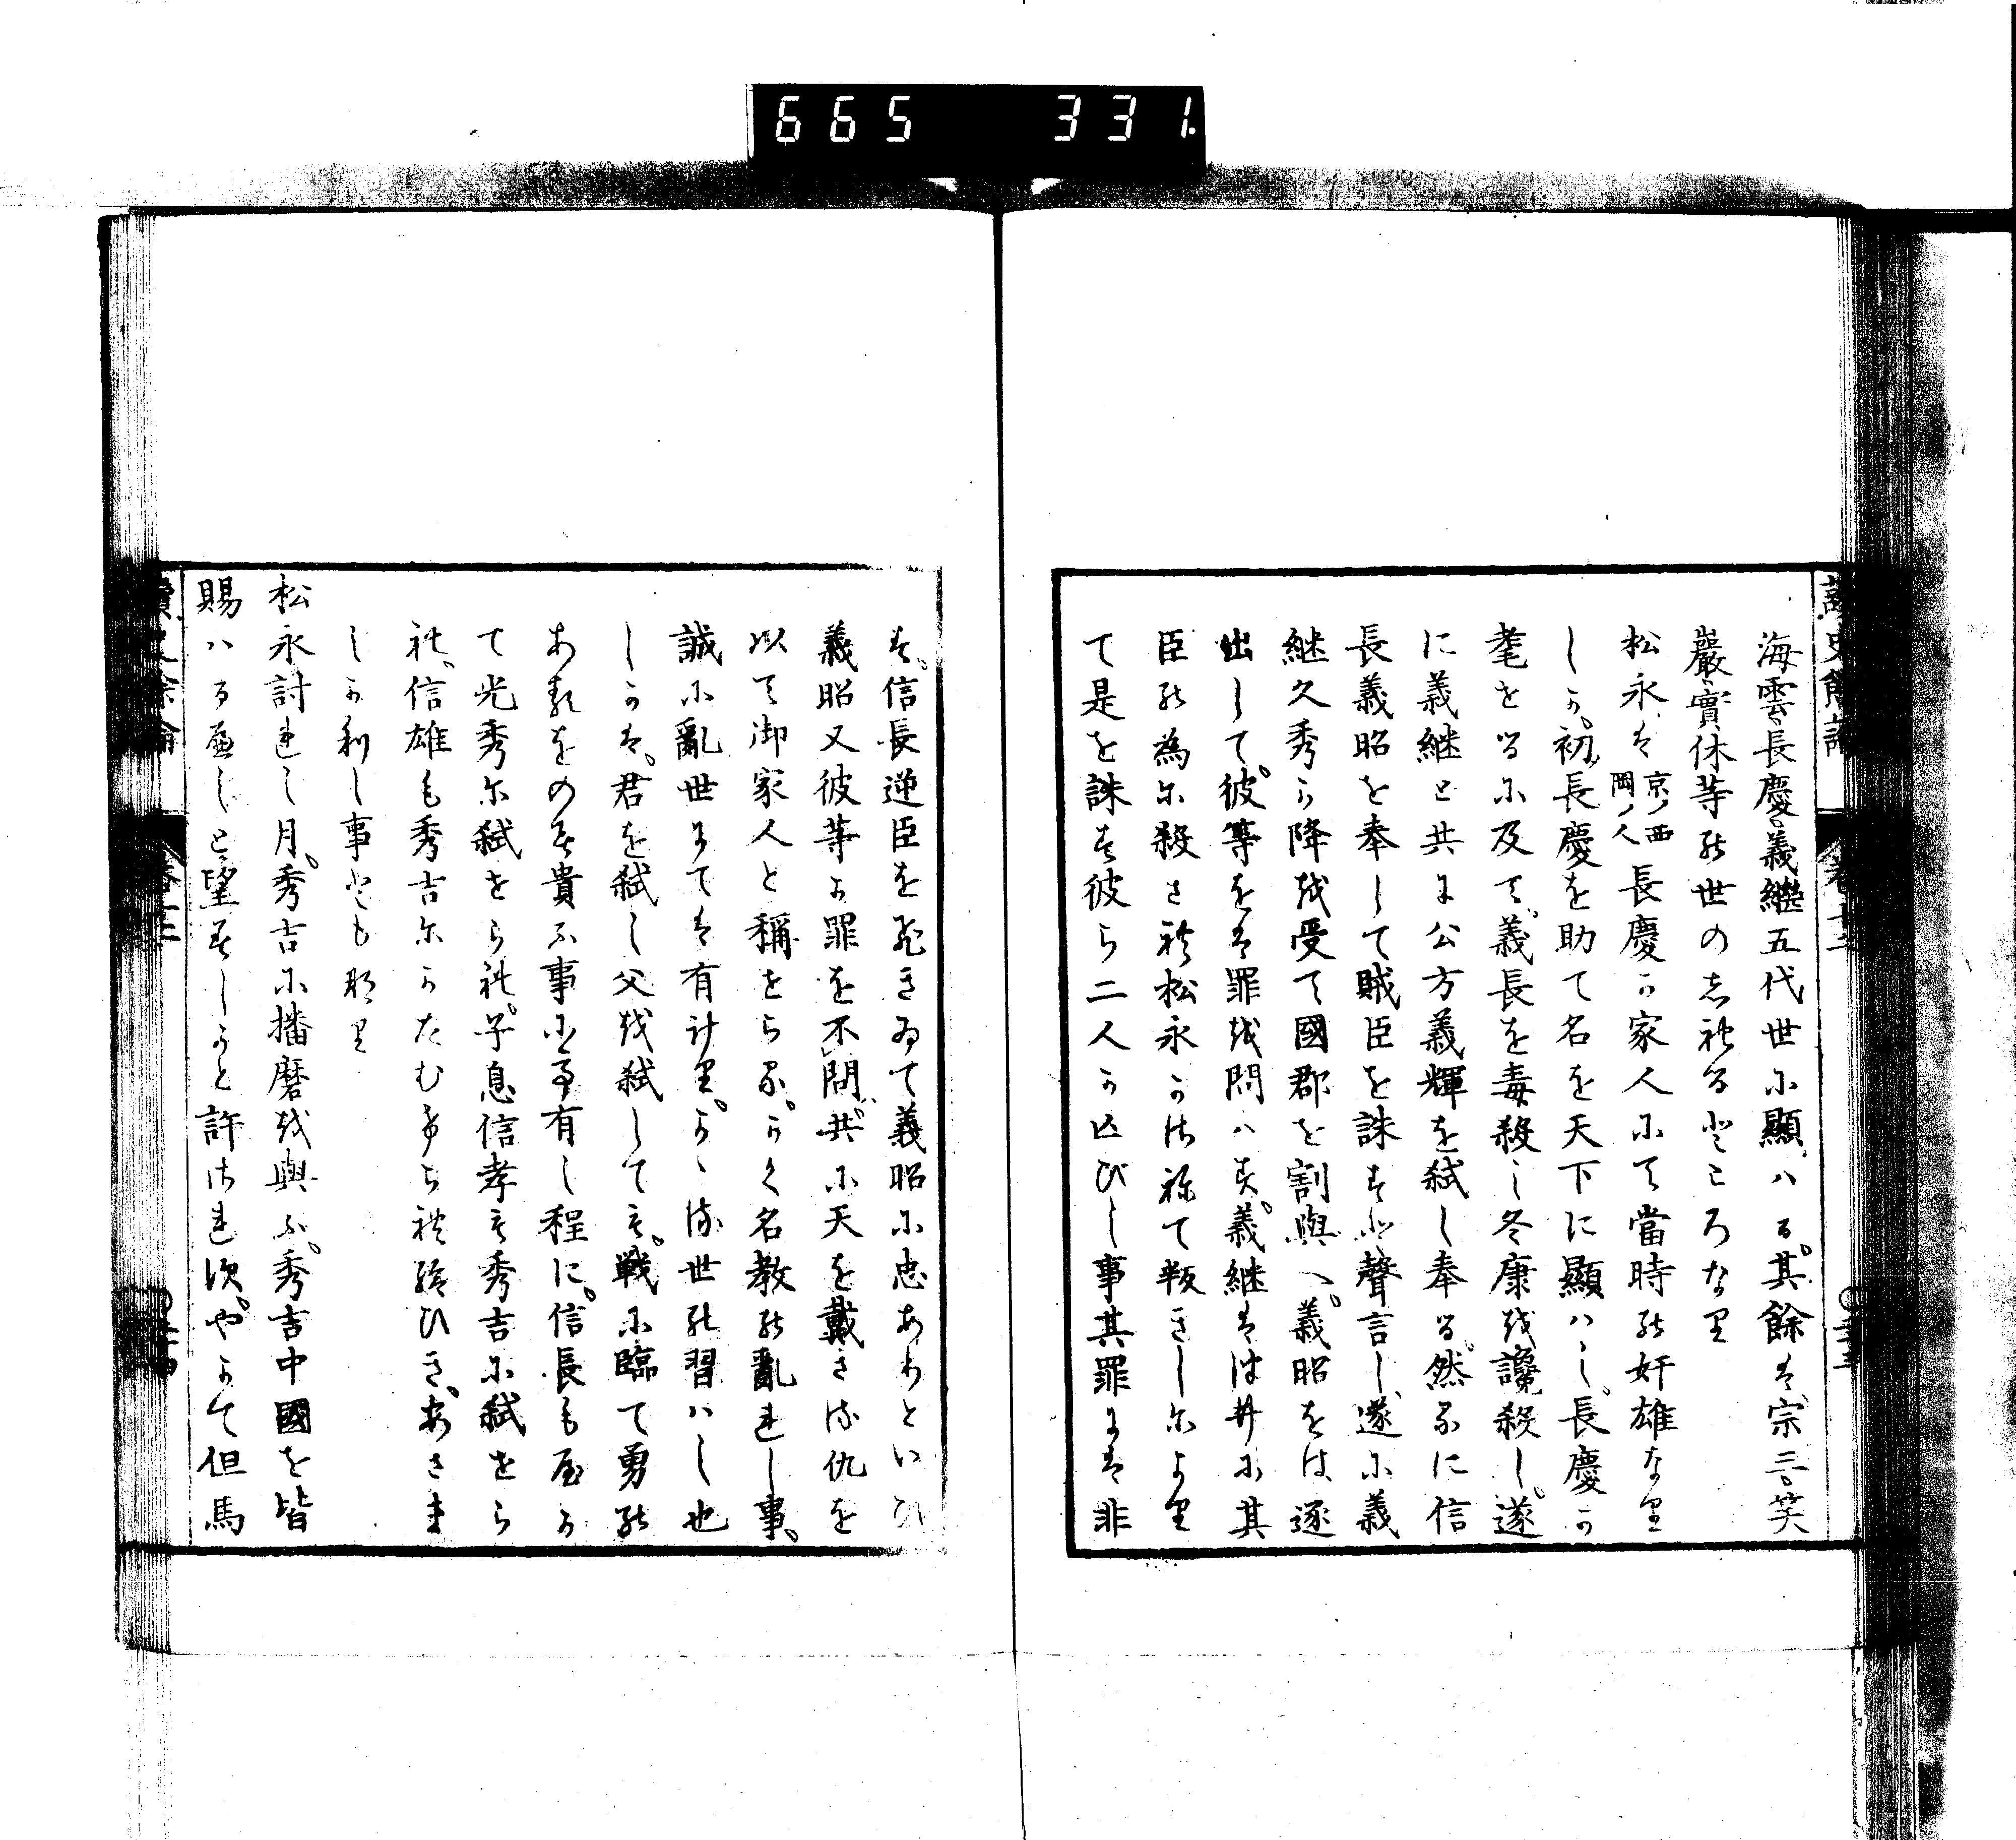 665 331
讀史餘論 卷十二
海雲、長慶、義繼五代世に顯ハる。其餘は、宗三、笑
巖、實休等の世のしれるところなり
松永は京ノ西岡ノ人長慶か家人にて當時の奸雄なり
しか、初長慶を助て名を天下に顯ハし、長慶か
耄をるに及て、義長を毒殺し冬康を讒殺し、遂
に義継と共に公方義輝を弑し奉る。然るに信
長義昭を奉して賊臣を誅すと聲言し、遂に義
継久秀か降を受て國郡を割與へ、義昭をは逐
出して、彼等をは罪を問ハす、義継は律井に其
臣の為に殺され松永かさねて叛きしにより
て是を誅す彼ら二人か亡ひし事其罪には非
す。信長逆臣をひきゐて義昭に忠ありといひ
義昭又彼等か罪を不問、共に天を戴さる仇を
以て御家人と稱せらる。かく名教の亂れし事、
誠に亂世にては有けり。かゝる世の習ハし也
しかは、君を弑し父を弑しても、戰に臨て勇の
あるをのみ貴ふ事に事有し程に、信長も屋か
て光秀に弑せられ、子息信孝も秀吉に弑せら
れ、信雄も秀吉にかたむけられ給ひき、あさま
しかりし事ともなり
松永討れし月、秀吉に播磨を與ふ。秀吉中國を皆
賜ハる屆しと望ましかと許されす。やかて但馬
讀史餘論 卷十二